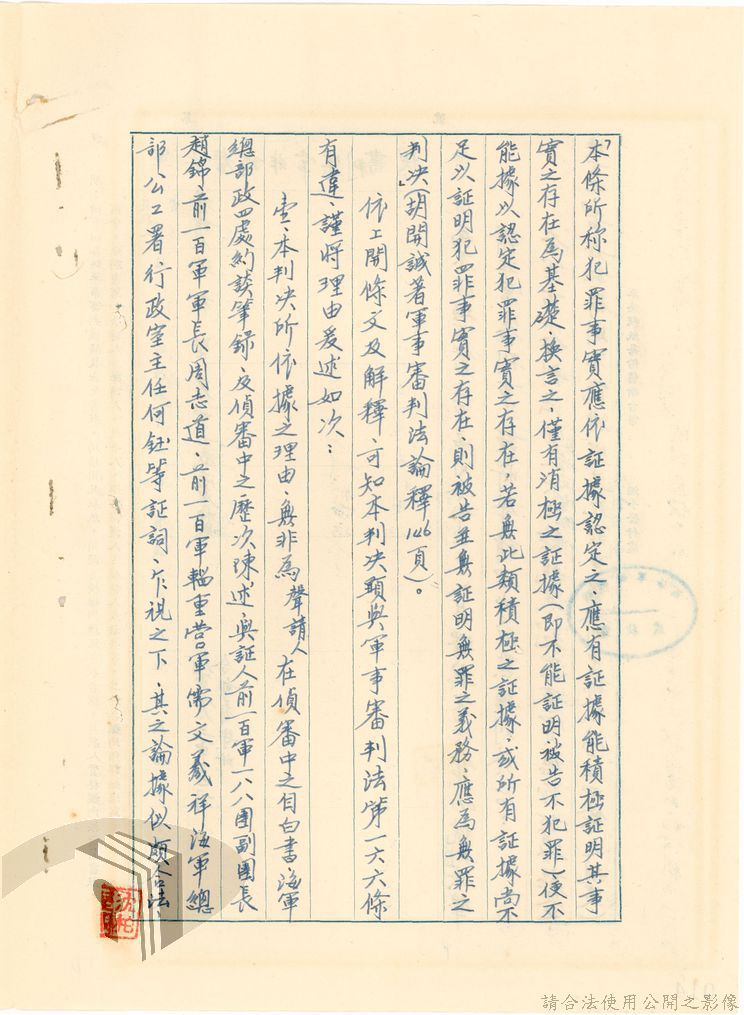 「本條所称犯罪事實應依証據認定之、應有証據能積極証明其事
實之存在為基礎、換言之、僅有消極之証據（即不能証明被告不犯罪）、便不
能據以認定犯罪事實之存在、若無此類積極之証據、或所有証據尚不
足以証明犯罪事實之存在、則被告並無証明無罪之義務、應為無罪之
判决」（胡開誠著軍事審判法論釋146頁）。
依上開條文及解釋、可知本判决顯與軍事審判法第一六六條
有違、謹將理由爰述如次：
壹、本判决所依據之理由、無非為聲請人在偵審中之自白書海軍
總部政四處約談筆錄、及偵審中之歷次陳述、與証人前一百軍一八八團副團長
趙錦、前一百軍軍長周志道、前一百軍輜重營軍需文義祥海軍總
部公工署行政室主任何鈺等証詞、乍視之下、其之論據似頗合法、
請合法使用公開之影像